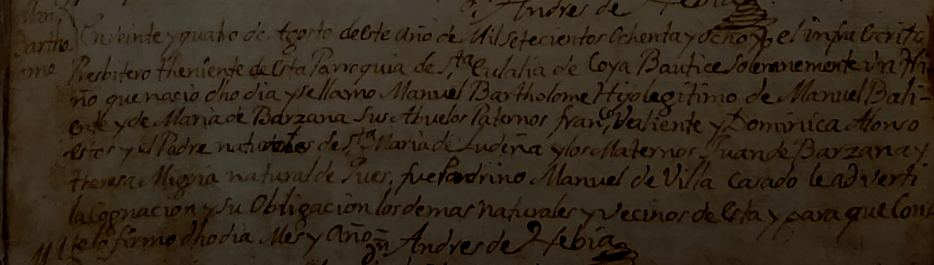 Andres de Hebia
Man.l
Bartho
lome
En veinte y quatro de Agosto de este año de Mil Setecientos Ochenta y ocho yo el infra escrito
Presbitero theniente de esta Parroquia de S.ta Eulalia de Coya Bautice Solemnemente Un Ni
ño que nacio dho dia y se llamo Manuel Bartholome Hijo legitimo de Manuel Bali-
ente y de Maria de Barzana Sus Abuelos Paternos fran.co Valiente y Dominica Alonso
estos y el Padre naturales de S.ta Maria de Ludeña y los Maternos Juan de Barzana y
theresa Migoia natural de Pues, fue Padrino Manuel de Villa casado le adverti
la Cognacion y su Obligacion los demas naturales y vecinos de esta y para que Cons
te lo firmo dho dia Mes y Año=
Dn Andres de Hebia